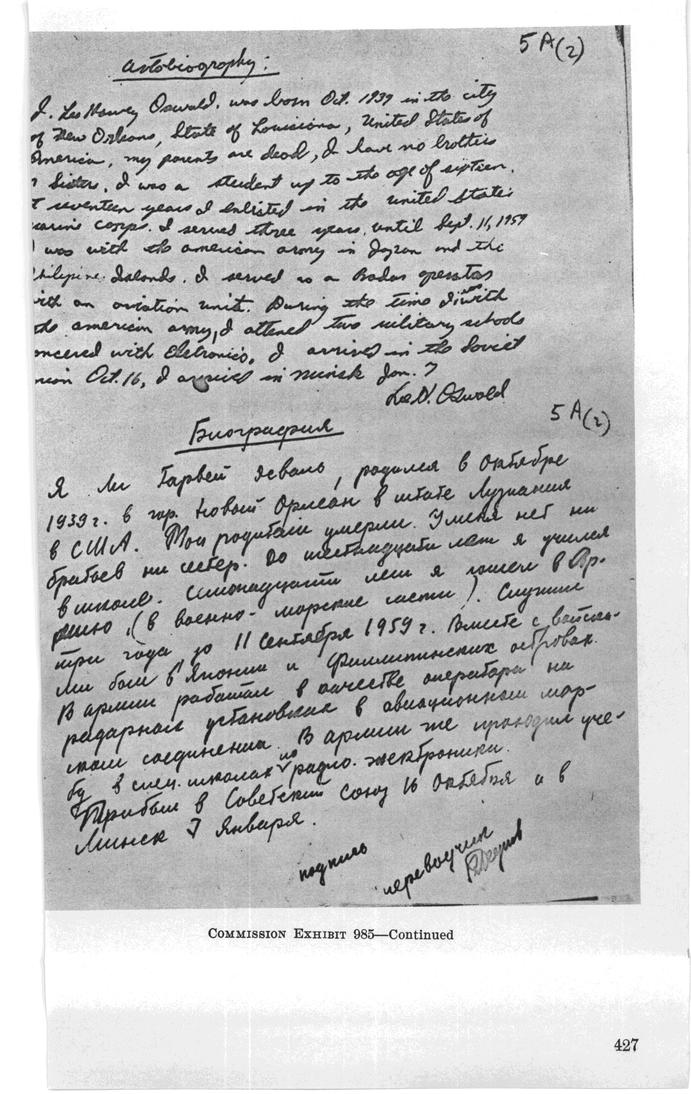 5 A(2)
Autobiography:
I. Lee Harvey Oswald, was born Oct. 1939 in the city
of New Orleans, State of Louisiana, United States of
America, my parents are dead, I have no brothers
r Sisters. I was a student up to the age of sixteen.
t seventeen years I enlisted in the united states
marine corps. I served three years, until Sept. 11, 1959
I was with the american army in Japan and the
Philepine Islands. I served as a Radar operator
with an aviation unit. During the time I was with
the american army, I attened two military schools
oncered with Eletronics, I arrived in the Soviet
nion Oct. 16, I arrived in Minsk Jan. 7
Lee H. Oswald
5 A(2)
Биография
Я Ли Гарвей Освальд, родился в Октябре
1939 г. в гор. Новый Орлеан в штате Лузиания
в США. Мои родители умерли. У меня нет ни
братьев ни сестер. До шестнадцати лет я учился
в школе. Семнадцати лет я пошел в Ар-
мию, (в военно-морские части). Служил
три года до 11 Сентября 1959 г. Вместе с войска-
ми был в Японии и Филиппинских островах.
В армии работал в качестве оператора на
радарных установках в авиационном мор-
ском соединении. В армии же проходил уче-
бу в спец. школах по радио. электроники.
Прибыл в Советский Союз 16 Октября и в
Минск 7 Января.
подпись
переводчик
COMMISSION EXHIBIT 985—Continued
427